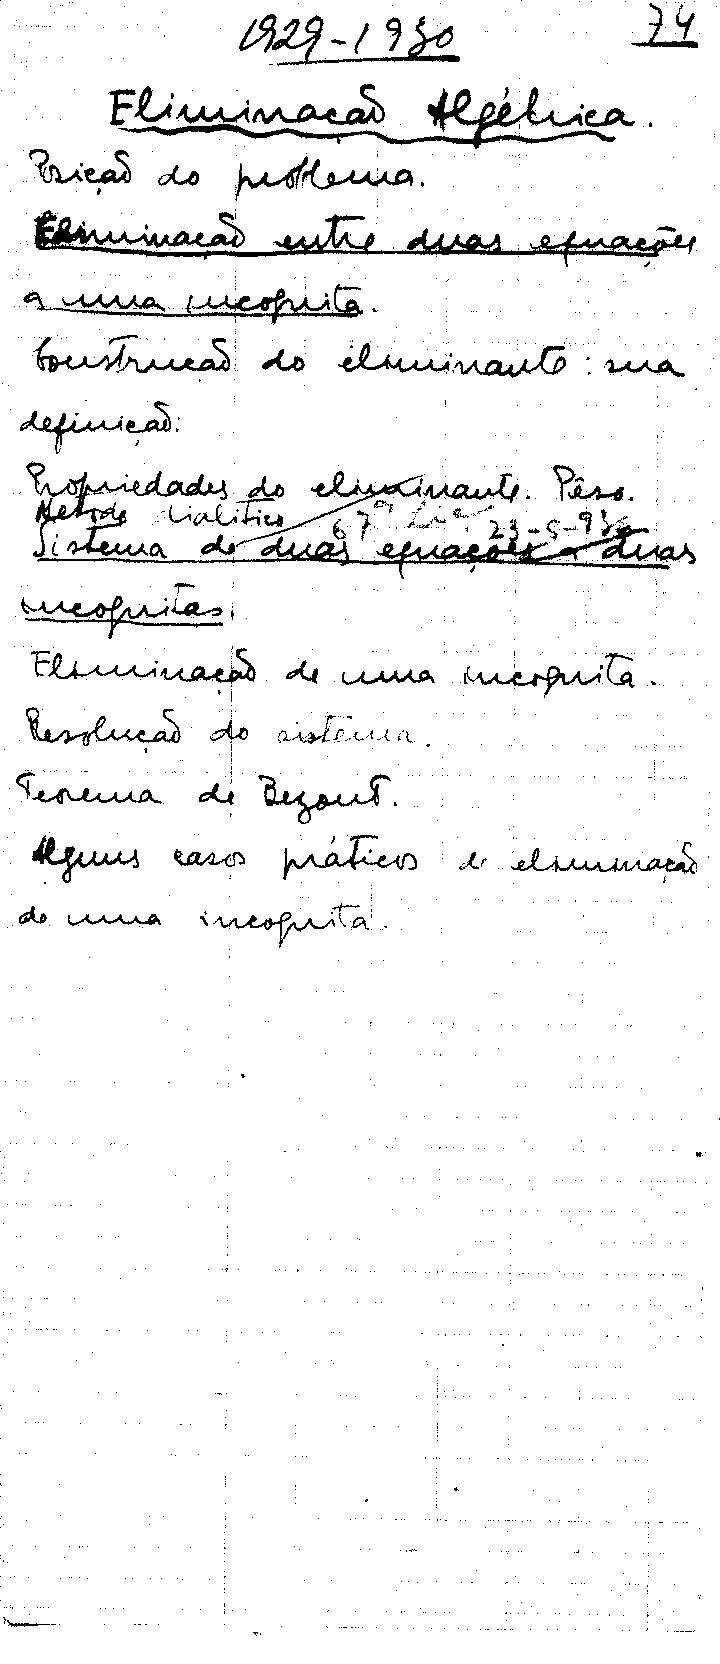 1929-1930 74
Eliminação Algébrica.
Posição do problema.
Eliminação entre duas equações
a uma incognita.
Construção do eliminante: sua
definição.
Propriedades do eliminante. Pêso.
Metodo dialitico 67ª 23-5-930
Sistema de duas equações a duas
incognitas.
Eliminação de uma incognita.
Resolução do sistema.
Teorema de Bezout.
Alguns casos práticos de eliminação
de uma incognita.